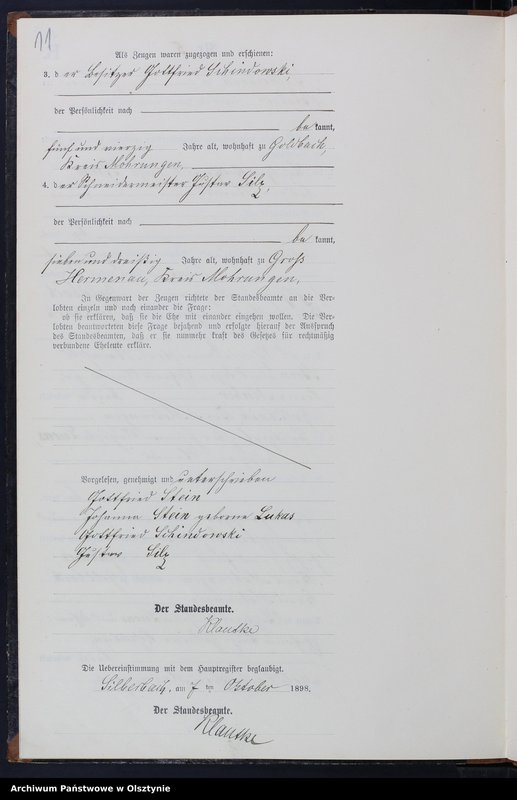 11
Als Zeugen waren zugezogen und erschienen:
3. der Besitzer Gottfried Schindowski,
der Persönlichkeit nach
be kannt,
fünf und vierzig Jahre alt, wohnhaft zu Goldbach,
Kreis Mohrungen,
4. der Schneidermeister Gustav Silz,
der Persönlichkeit nach
be kannt,
sieben und dreißig Jahre alt, wohnhaft zu Groß
Hermenau, Kreis Mohrungen,
In Gegenwart der Zeugen richtete der Standesbeamte an die Ver-
lobten einzeln und nach einander die Frage:
ob sie erklären, daß sie die Ehe mit einander eingehen wollen. Die Ver-
lobten beantworteten diese Frage bejahend und erfolgte hierauf der Ausspruch
des Standesbeamten, daß er sie nunmehr kraft des Gesetzes für rechtmäßig
verbundene Eheleute erkläre.
Vorgelesen, genehmigt und unterschrieben
Gottfried Stein
Johanna Stein geborne Lukas
Gottfried Schindowski
Gustav Silz
Der Standesbeamte.
Klautke
Die Uebereinstimmung mit dem Hauptregister beglaubigt.
Silberbach, am 7 ten Oktober 1898.
Der Standesbeamte.
Klautke
Archiwum Państwowe w Olsztynie